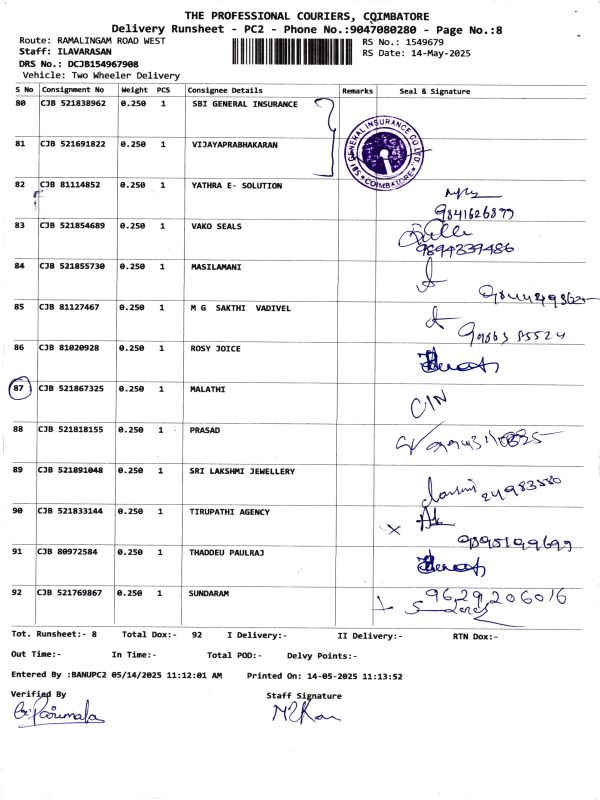 THE PROFESSIONAL COURIERS, COIMBATORE
Delivery Runsheet - PC2 - Phone No.:9047080280 - Page No.:8
Route: RAMALINGAM ROAD WEST RS No.: 1549679
Staff: ILAVARASAN RS Date: 14-May-2025
DRS No.: DCJB154967908
Vehicle: Two Wheeler Delivery
S No Consignment No Weight PCS Consignee Details Remarks Seal & Signature
80 CJB 521838962 0.250 1 SBI GENERAL INSURANCE
SBI GENERAL INSURANCE CO.LTD. COIMBATORE
81 CJB 521691822 0.250 1 VIJAYAPRABHAKARAN
82 CJB 81114852 0.250 1 YATHRA E- SOLUTION
9841626877
83 CJB 521854689 0.250 1 VAKO SEALS
9894337486
84 CJB 521855730 0.250 1 MASILAMANI
85 CJB 81127467 0.250 1 M G SAKTHI VADIVEL
86 CJB 81020928 0.250 1 ROSY JOICE
87 CJB 521867325 0.250 1 MALATHI
C/N
88 CJB 521818155 0.250 1 PRASAD
89 CJB 521891048 0.250 1 SRI LAKSHMI JEWELLERY
90 CJB 521833144 0.250 1 TIRUPATHI AGENCY
91 CJB 80972584 0.250 1 THADDEU PAULRAJ
92 CJB 521769867 0.250 1 SUNDARAM
9629206016
Tot. Runsheet:- 8 Total Dox:- 92 I Delivery:- II Delivery:- RTN Dox:-
Out Time:- In Time:- Total POD:- Delvy Points:-
Entered By :BANUPC2 05/14/2025 11:12:01 AM Printed On: 14-05-2025 11:13:52
Verified By Staff Signature